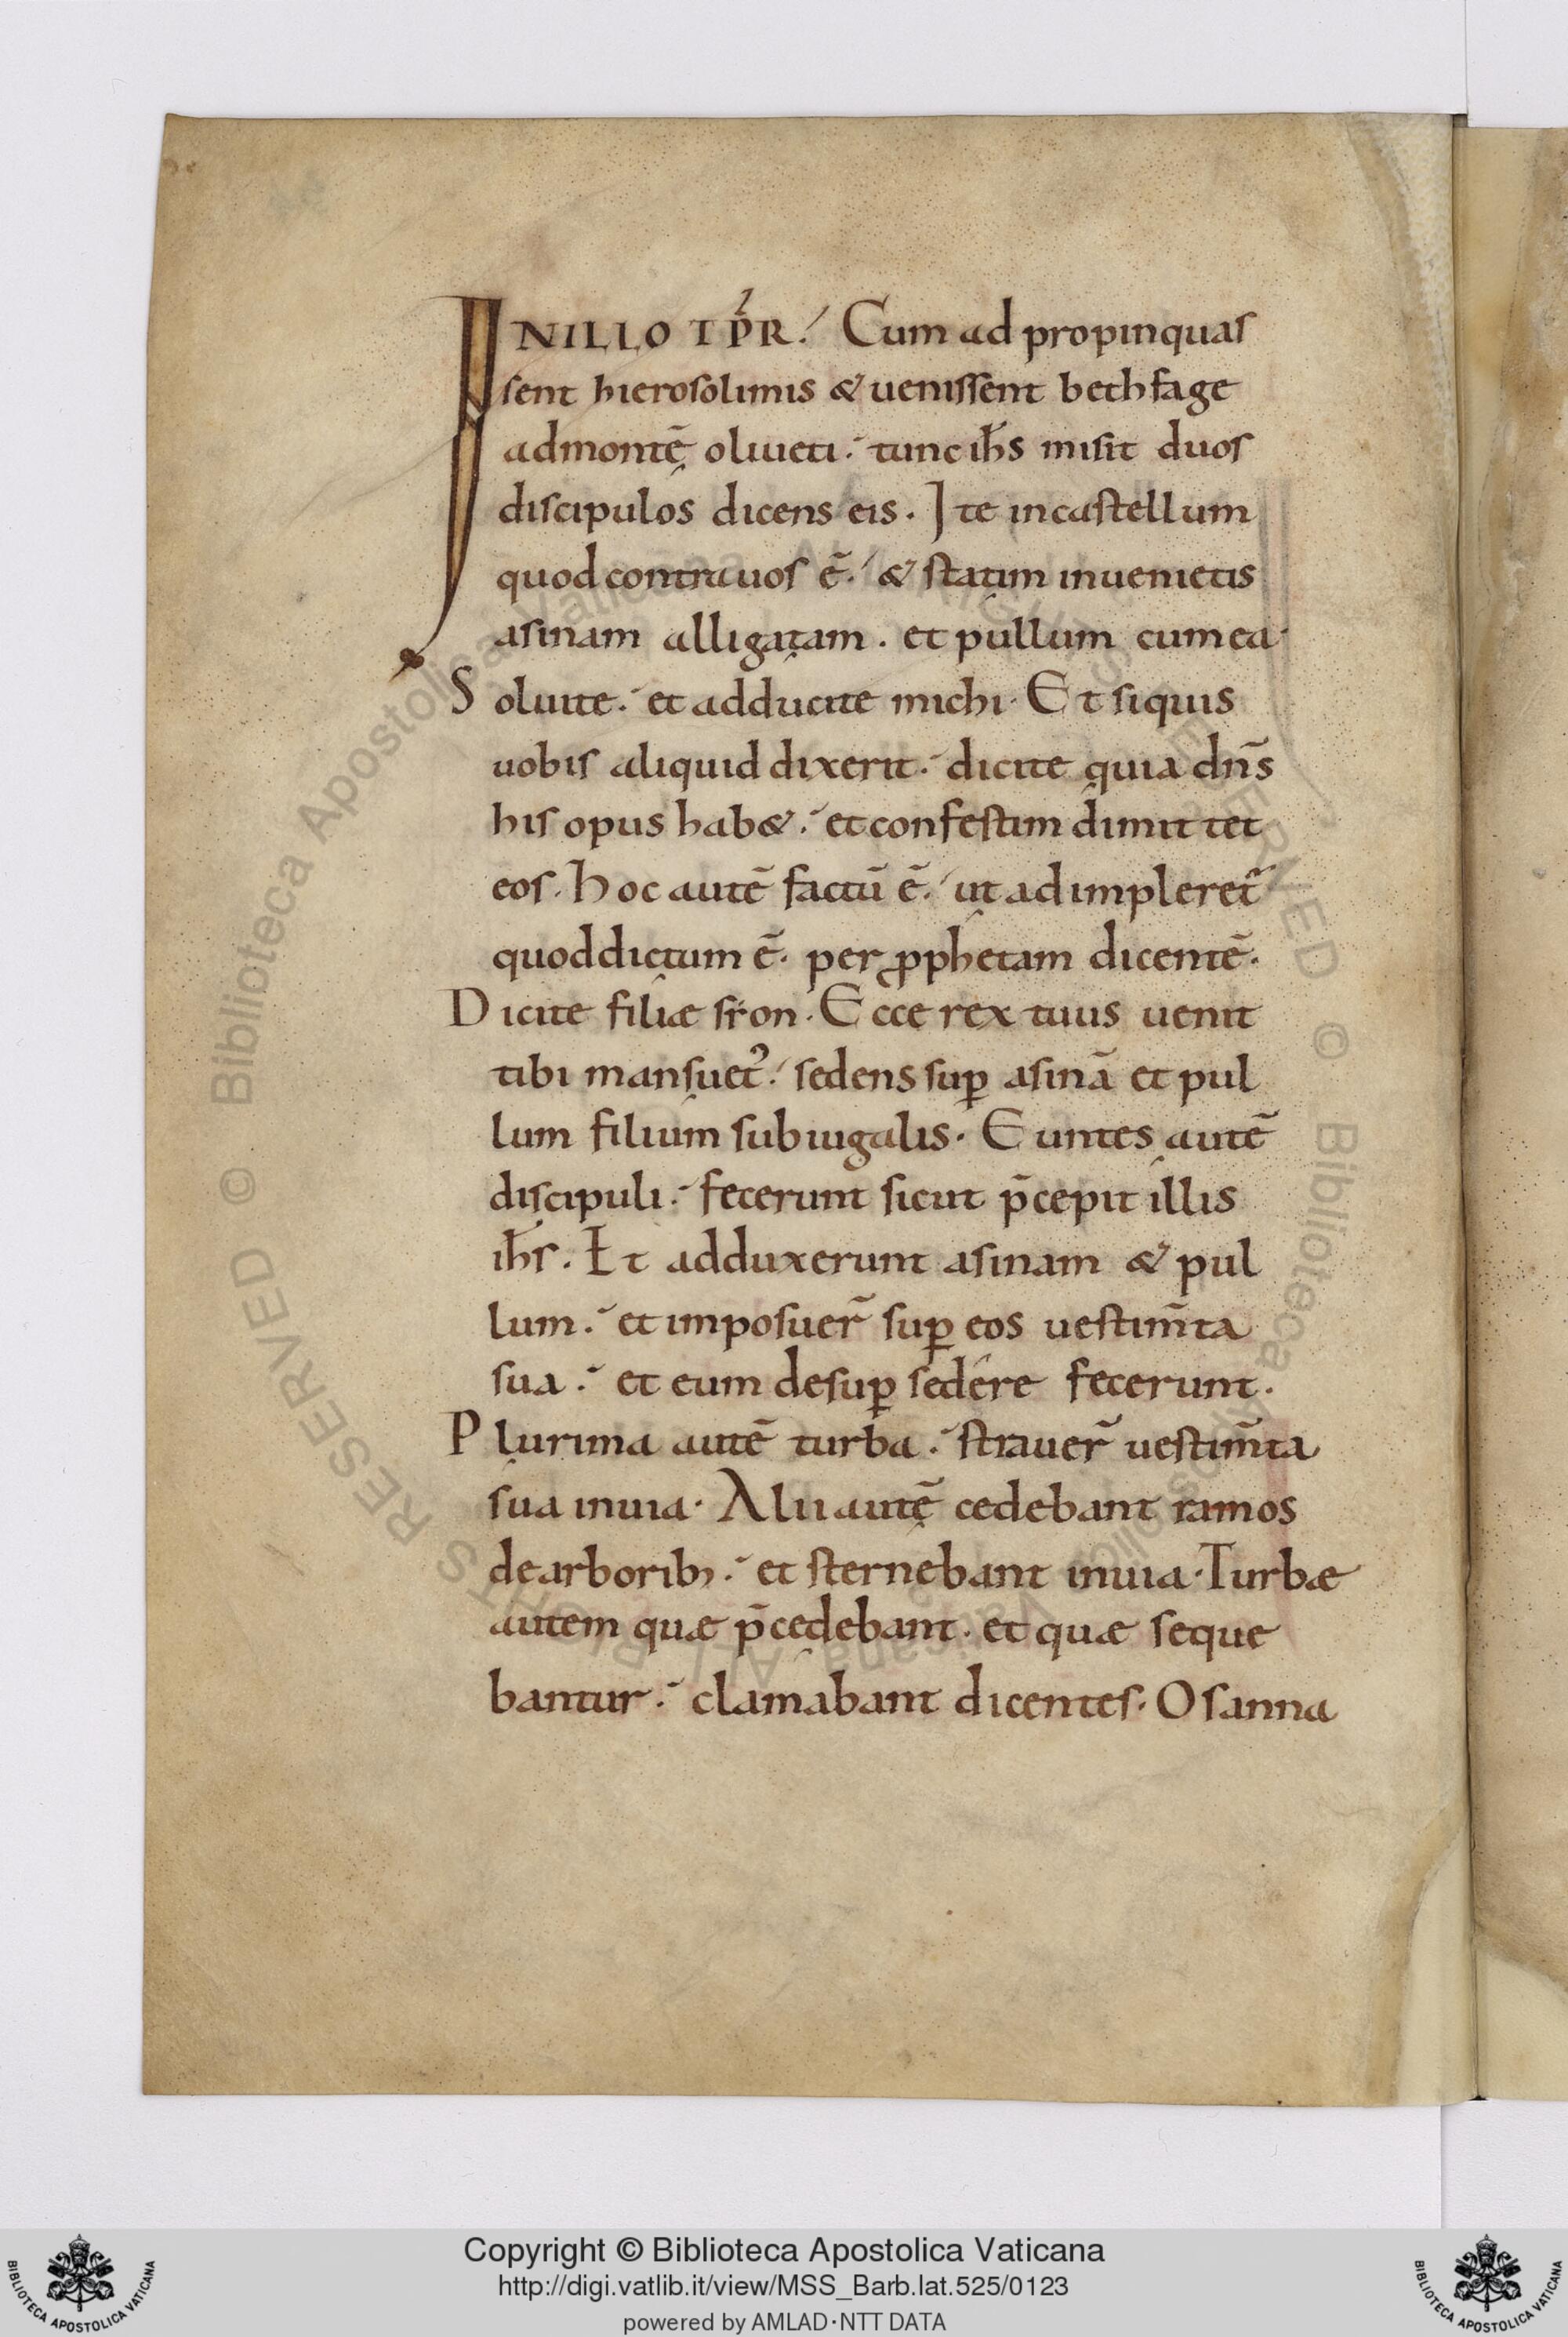 INILLO TP̄R. Cum ad propinquas
sent hierosolimis & uenissent bethfage
admontē oliueti. tunc ih̄s misit duos
discipulos dicens eis. Ite incastellum
quod contra uos ē. & statim inuenietis
asinam alligatam. et pullum cum ea.
Soluite. et adducite michi. Et siquis
uobis aliquid dixerit. dicite quia dn̄s
his opus hab&. et confestim dimittet
eos. hoc autē factū ē. ut ad impleret᷑
quod dictum ē. per ꝓphetam dicentē.
Dicite filiæ sion. Ecce rex tuus uenit
tibi mansuetꝰ. sedens suꝑ asinā et pul
lum filium subiugalis. Euntes autē
discipuli. fecerunt sicut p̄cepit illis
ih̄s. Et adduxerunt asinam & pul
lum. et imposuer̄ suꝑ eos uestim̄ta
sua. et eum desuꝑ sedere fecerunt.
Plurima autē turba. strauer̄ uestim̄ta
sua inuia. Alii autē cedebant ramos
dearborib;. et sternebant inuia. Turbæ
autem quæ p̄cedebant. et quæ seque
bantur. clamabant dicentes. Osanna
© Biblioteca Apostolica Vaticana ALL RIGHTS RESERVED © Biblioteca Apostolica Vaticana ALL RIGHTS RESERVED
Copyright © Biblioteca Apostolica Vaticana
http://digi.vatlib.it/view/MSS_Barb.lat.525/0123
powered by AMLAD·NTT DATA
BIBLIOTECA APOSTOLICA VATICANA
BIBLIOTECA APOSTOLICA VATICANA